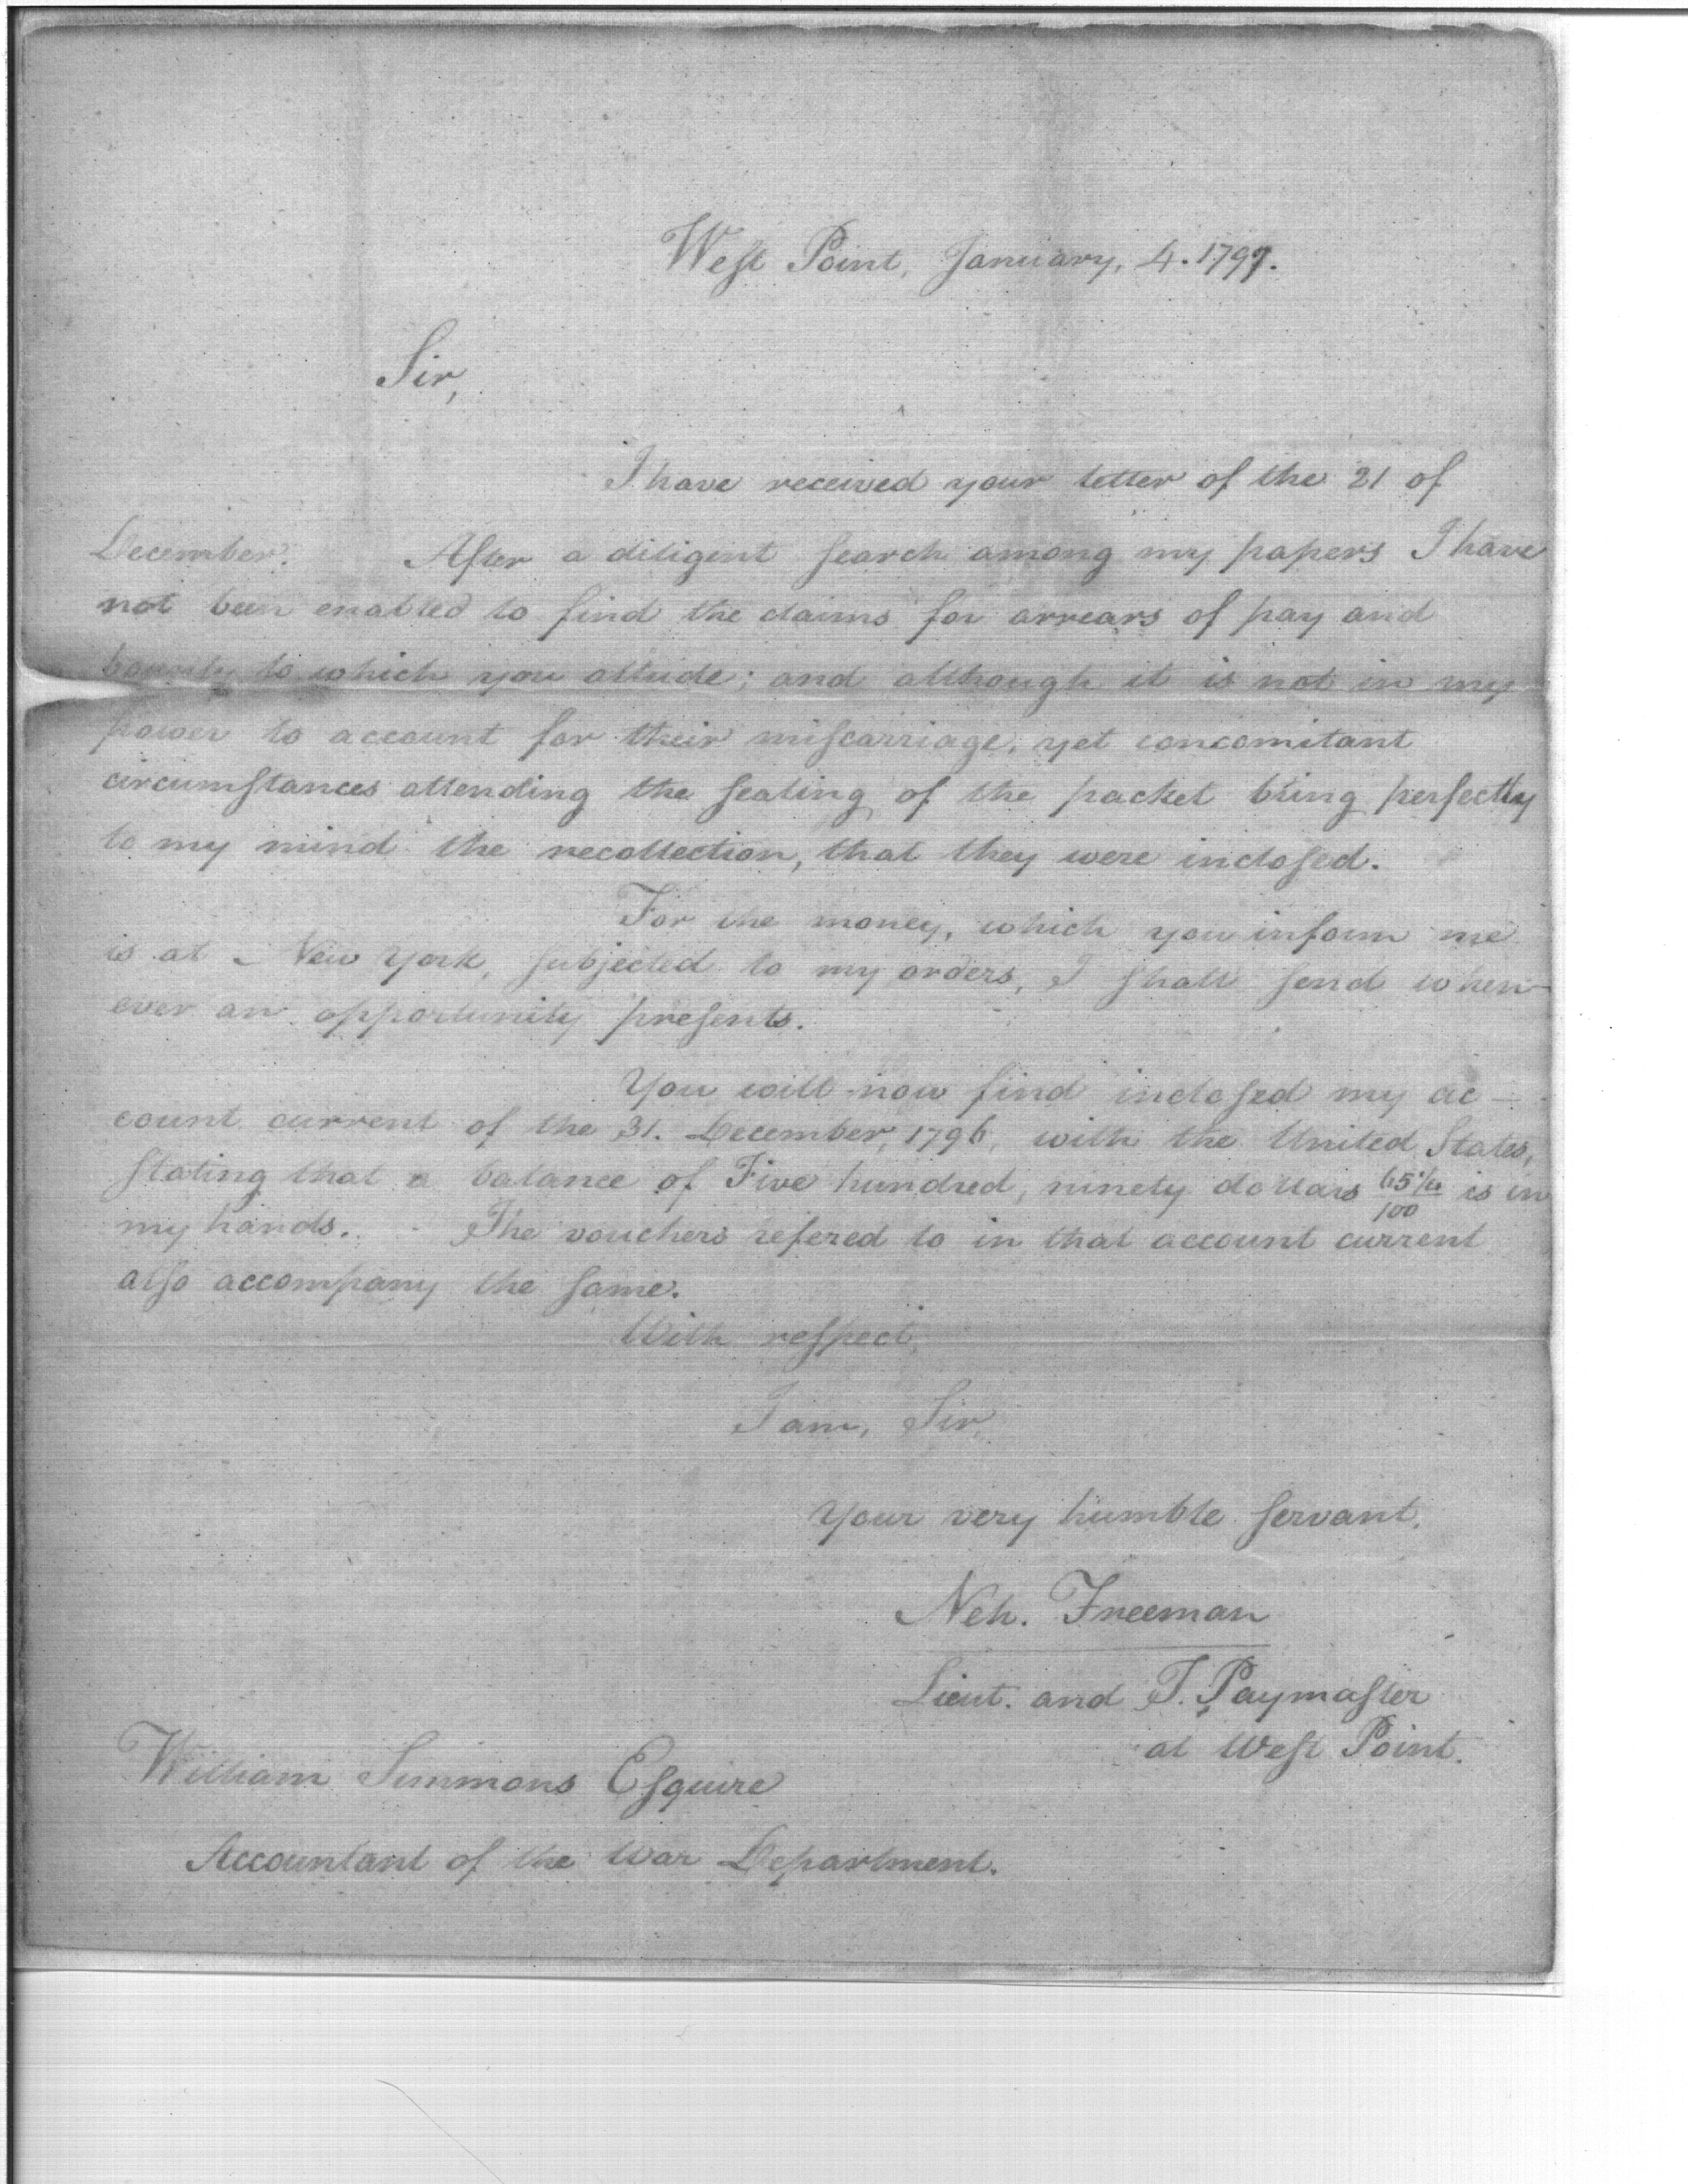 West Point, January, 4. 1797.
Sir,
I have received your letter of the 21 of
December. After a diligent search among my papers I have
not been enabled to find the claims for arrears of pay and
bounty to which you allude; and although it is not in my
power to account for their miscarriage, yet concomitant
circumstances attending the sealing of the packet bring perfectly
to my mind the recollection, that they were inclosed.
For the money, which you inform me
is at New York, subjected to my orders, I shall send when-
ever an opportunity presents.
You will now find inclosed my ac-
count current of the 31. December, 1796, with the United States,
stating that a balance of Five hundred, ninety dollars 65 /100 is in
my hands. The vouchers refered to in that account current
also accompany the same.
With respect,
I am, Sir,
your very humble servant.
Neh. Freeman
Lieut. and T. Paymaster
at West Point.
William Simmons Esquire
Accountant of the War Department.